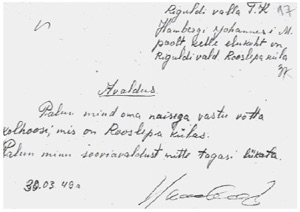 Riguldi valla T.K 97
Hambergi Johannes i M.
poolt kelle elukoht on
Riguldi vald Rooslepa küla
Avaldus.
Palun mind oma naisega vastu võtta
kolhoosi, mis on Rooslepa külas.
Palun minu sooviavaldust mitte tagasi lükata.
30.03 49a